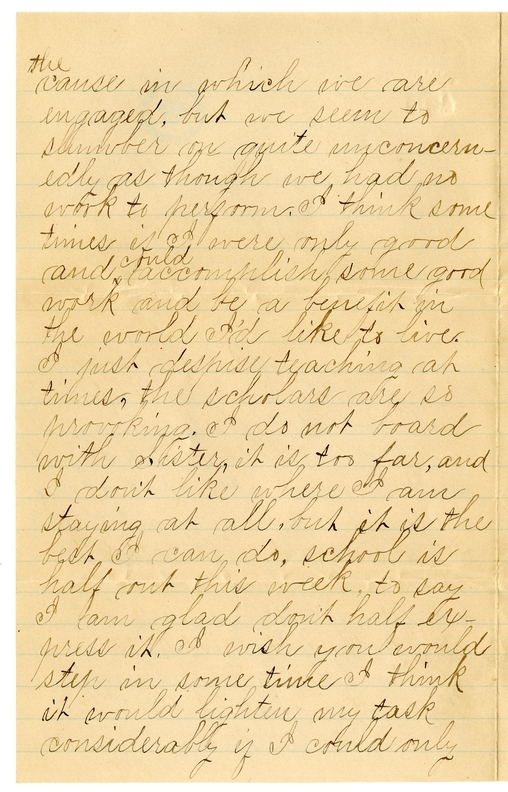 the
cause in which we are
engaged, but we seem to
slumber on quite unconcern-
edly as though we had no
work to perform. I think some
times if I were only good
and could accomplish some good
work and be a benefit in
the world I'd like to live.
I just despise teaching at
times, the scholars are so
provoking. I do not board
with Sister, it is too far, and
I don't like where I am
staying at all, but it is the
best I can do, school is
half out this week, to say
I am glad don't half ex-
press it. I wish you would
step in some time I think
it would lighten my task
considerably if I could only